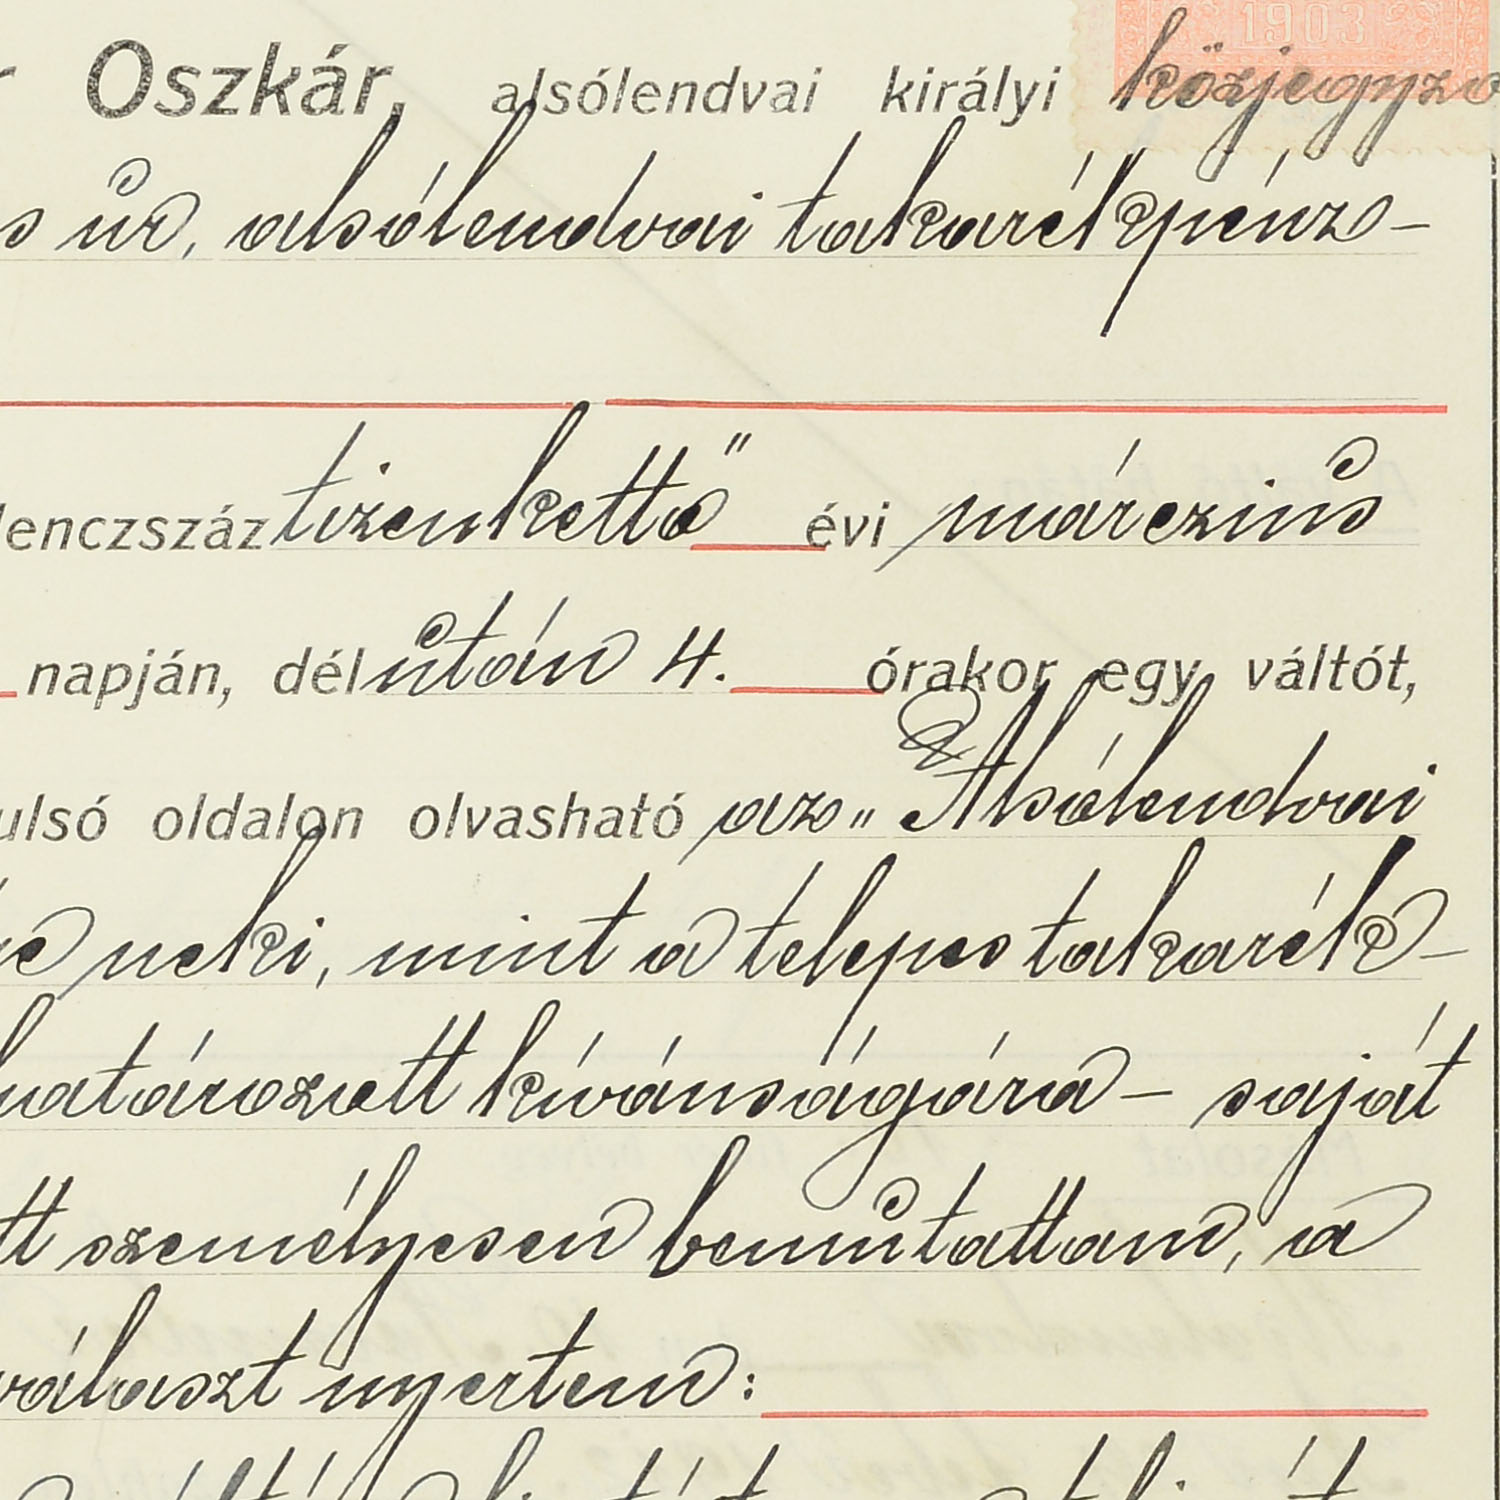 1903
r Oszkár, alsólendvai királyi közjegyző
s úr, alsólendvai takarékpénz-
lenczszáz tizenkettő évi márczius
napján, délután 4. órakor egy váltót,
ulsó oldalon olvasható az „Alsólendvai
neki, mint a telepes takarék-
határozott kívánságára – saját
tt személyesen bemutattam, a
választ nyertem: